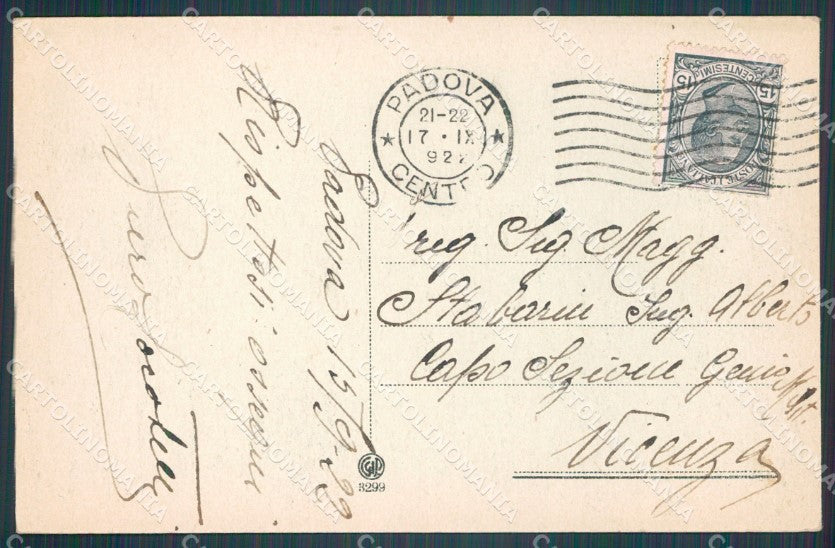 Padova 15/9-22
Rispettosi ossequi
PADOVA
21-22
17 · IX
922
CENTRO
15 CENTESIMI 15
Preg. Sig. Magg.
Stabarin Ing. Alberto
Capo Sezione Genio Milit.
Vicenza
3299
CARTOLINOMANIA